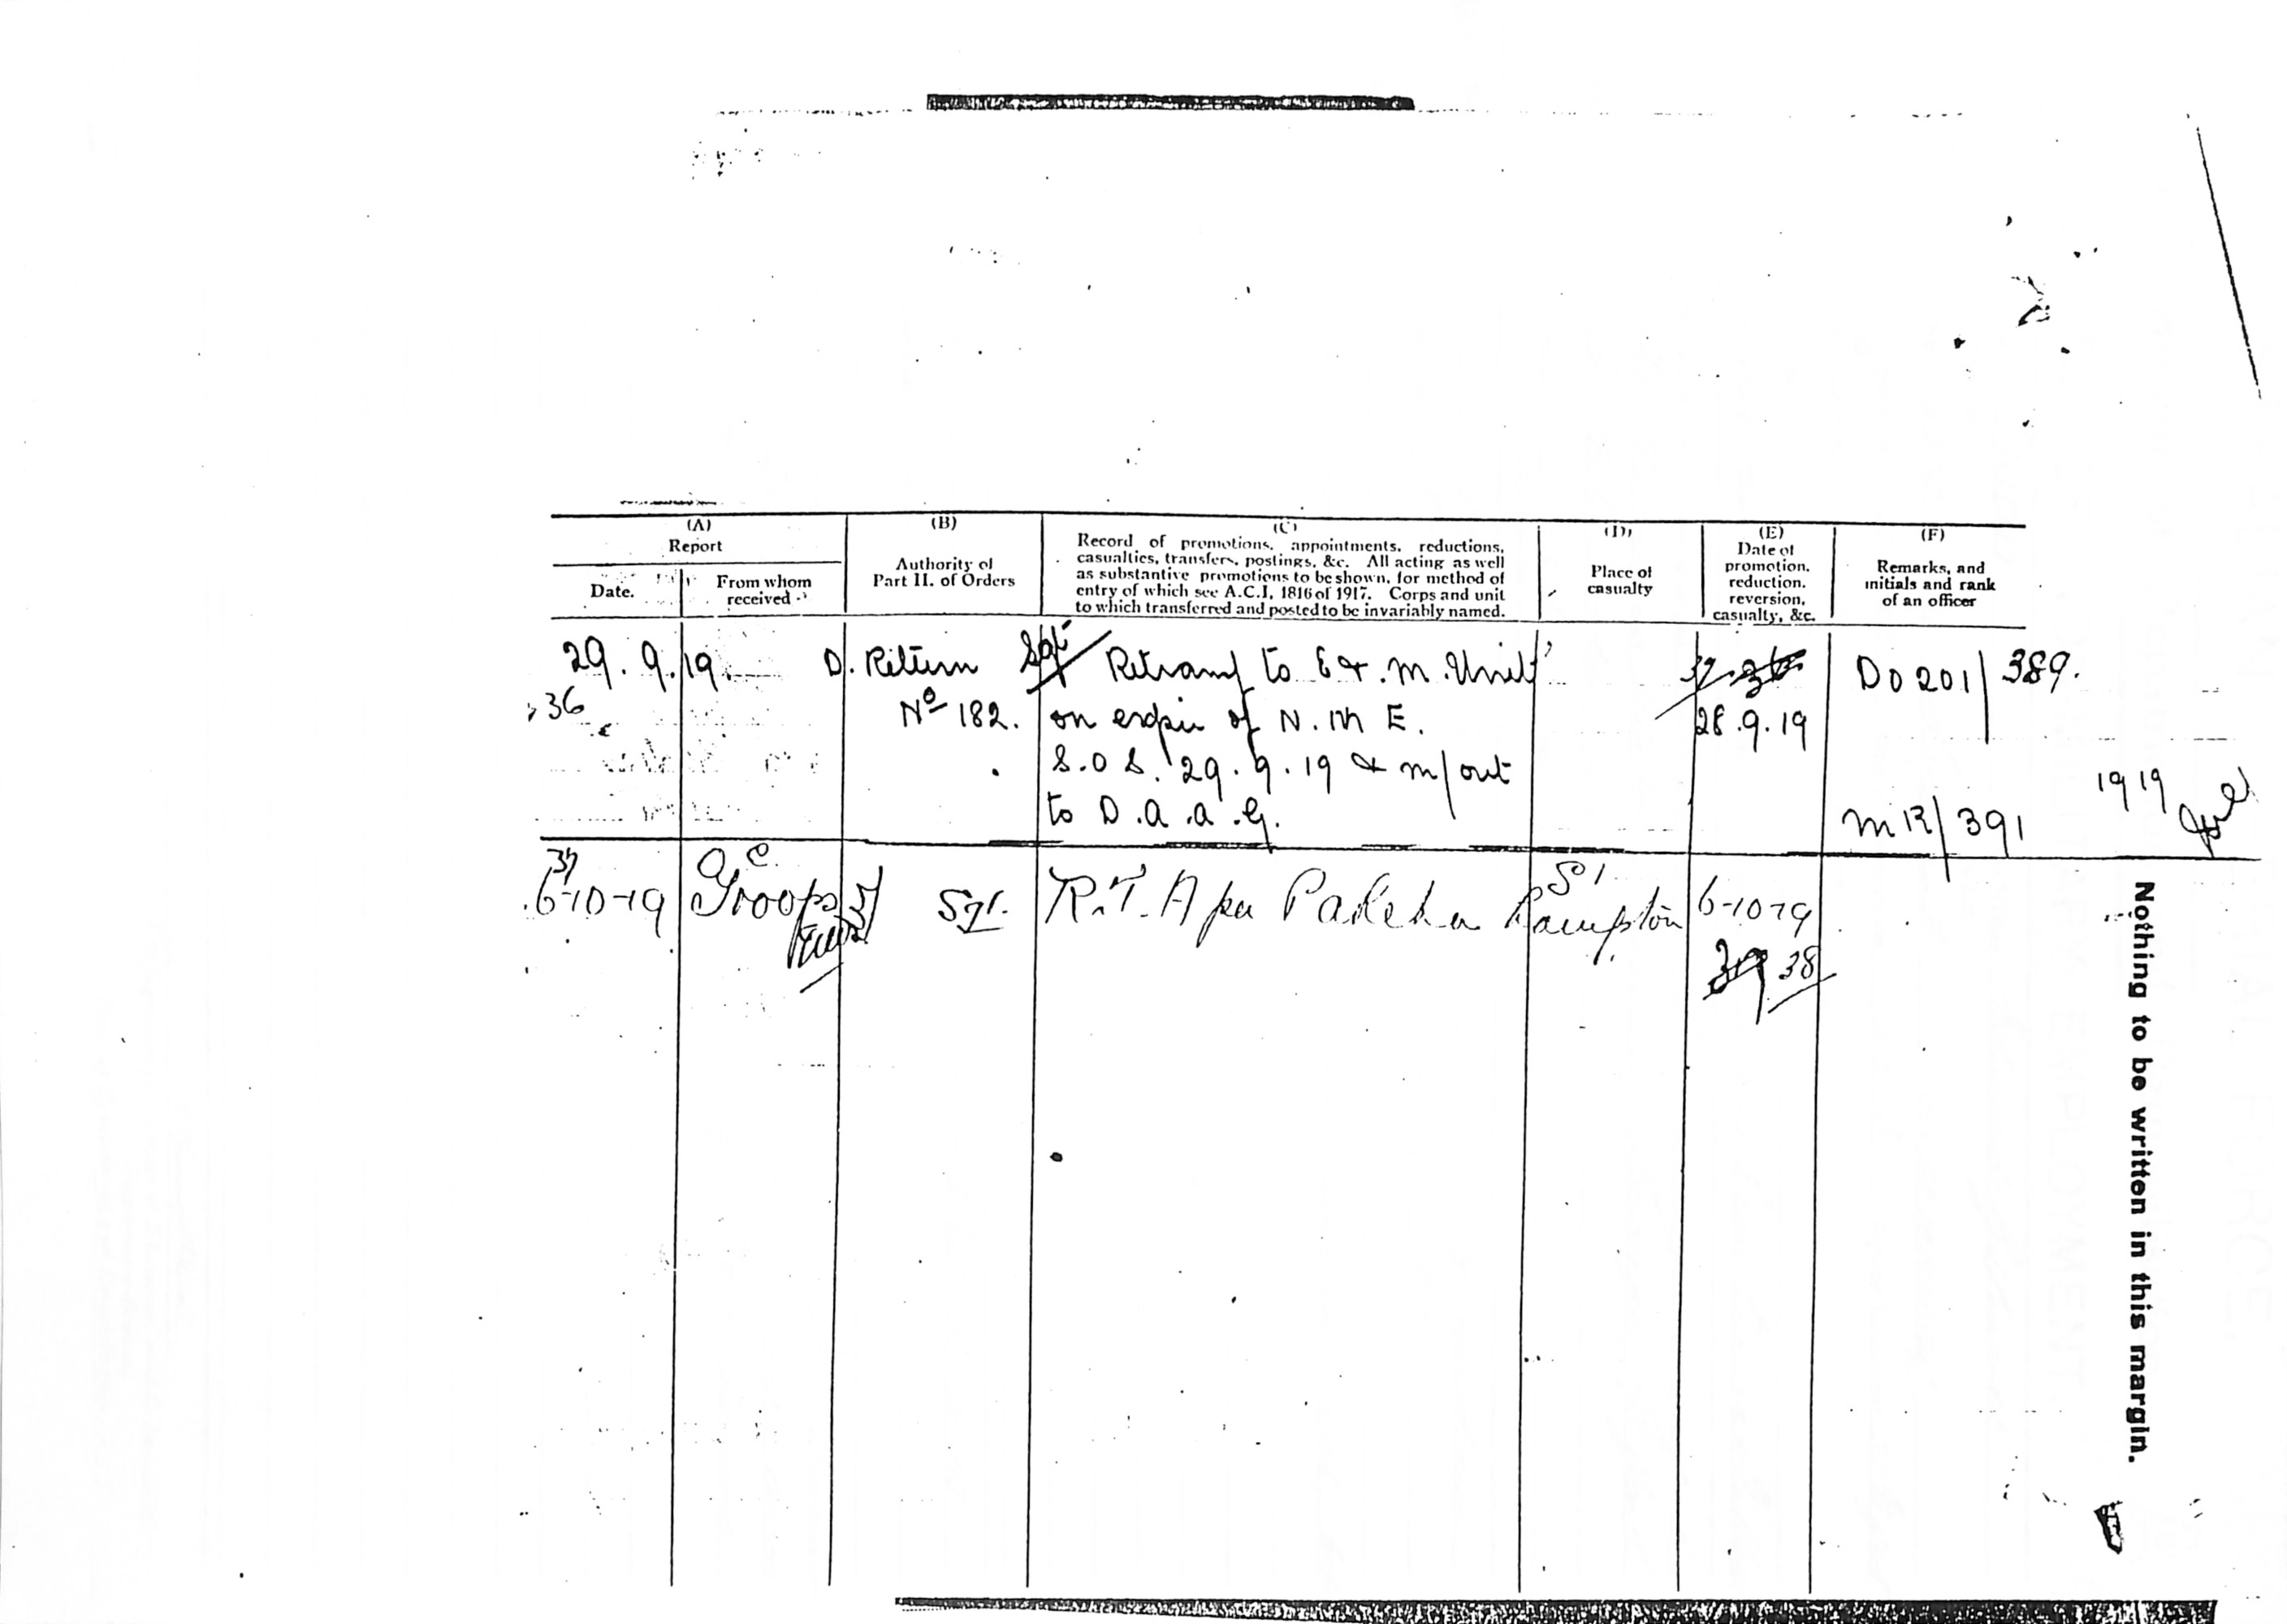 (A) (B) (C) (D) (E) (F)
Report
Date. From whom received
Authority of
Part II. of Orders
Record of promotions, appointments, reductions,
casualties, transfers, postings, &c. All acting as well
as substantive promotions to be shown, for method of
entry of which see A.C.I, 1816 of 1917. Corps and unit
to which transferred and posted to be invariably named.
Place of
casualty
Date of
promotion,
reduction,
reversion,
casualty, &c.
Remarks, and
initials and rank
of an officer
29.9.19. D. Return Sgt Retransf to E & .M. Unit 37 36 DO 201/389.
36 No 182. on expir of N. M E. 28.9.19
S.O.S. 29.9.19 & m/out
to D.A.A.G. MR/391 1919
37 O C. S'
6-10-19 Troops Sgt. R.T. A per Pakeha hampton 6-10-19
39 38
Nothing to be written in this margin.